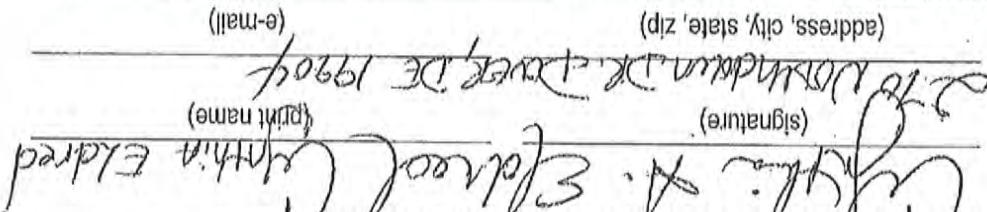 Cynthia A. Eldred Cynthia Eldred
(signature) (print name)
270 Northdown DR. DOVER, DE 19904
(address, city, state, zip) (e-mail)